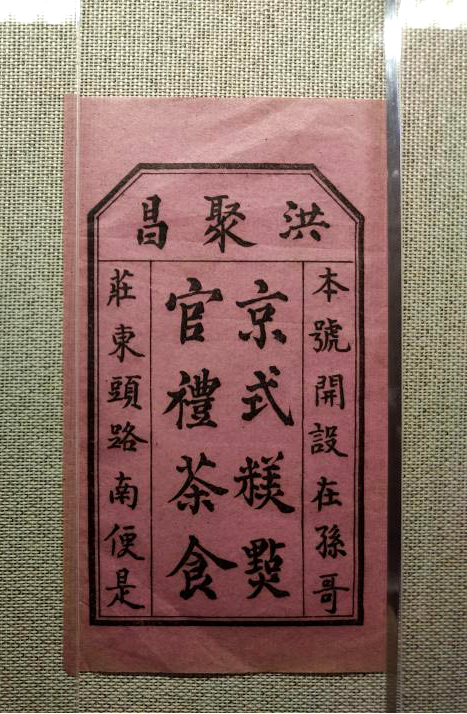 洪聚昌
本號開設在孫哥
京式糕點
官禮茶食
莊東頭路南便是